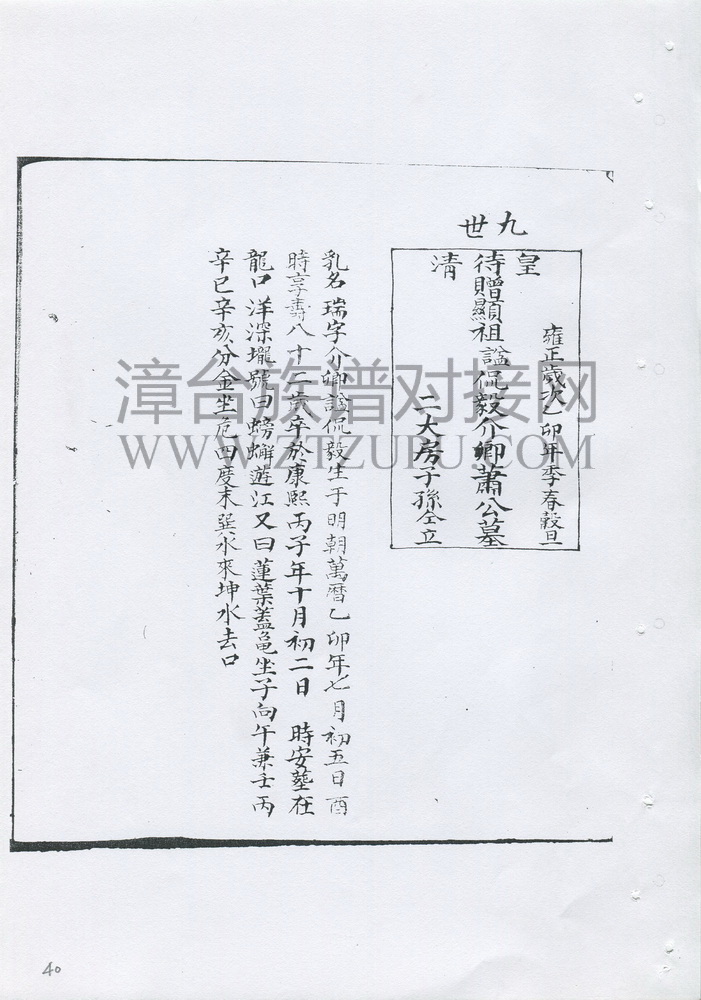 九世
雍正歲次乙卯年季春穀旦
皇
清
待贈顯祖諡侃毅介卿蕭公墓
二大房子孫仝立
乳名瑞字介卿諡侃毅生于明朝萬曆乙卯年七月初五日酉
時享壽八十二歲卒於康熙丙子年十月初二日 時安塟在
龍口洋深壠號曰螃蠏遊江又曰蓮葉蓋亀坐子向午兼壬丙
辛巳辛亥分金坐危四度末巽水來坤水去口
漳台族谱对接网
WWW.ZTZUPU.COM
40